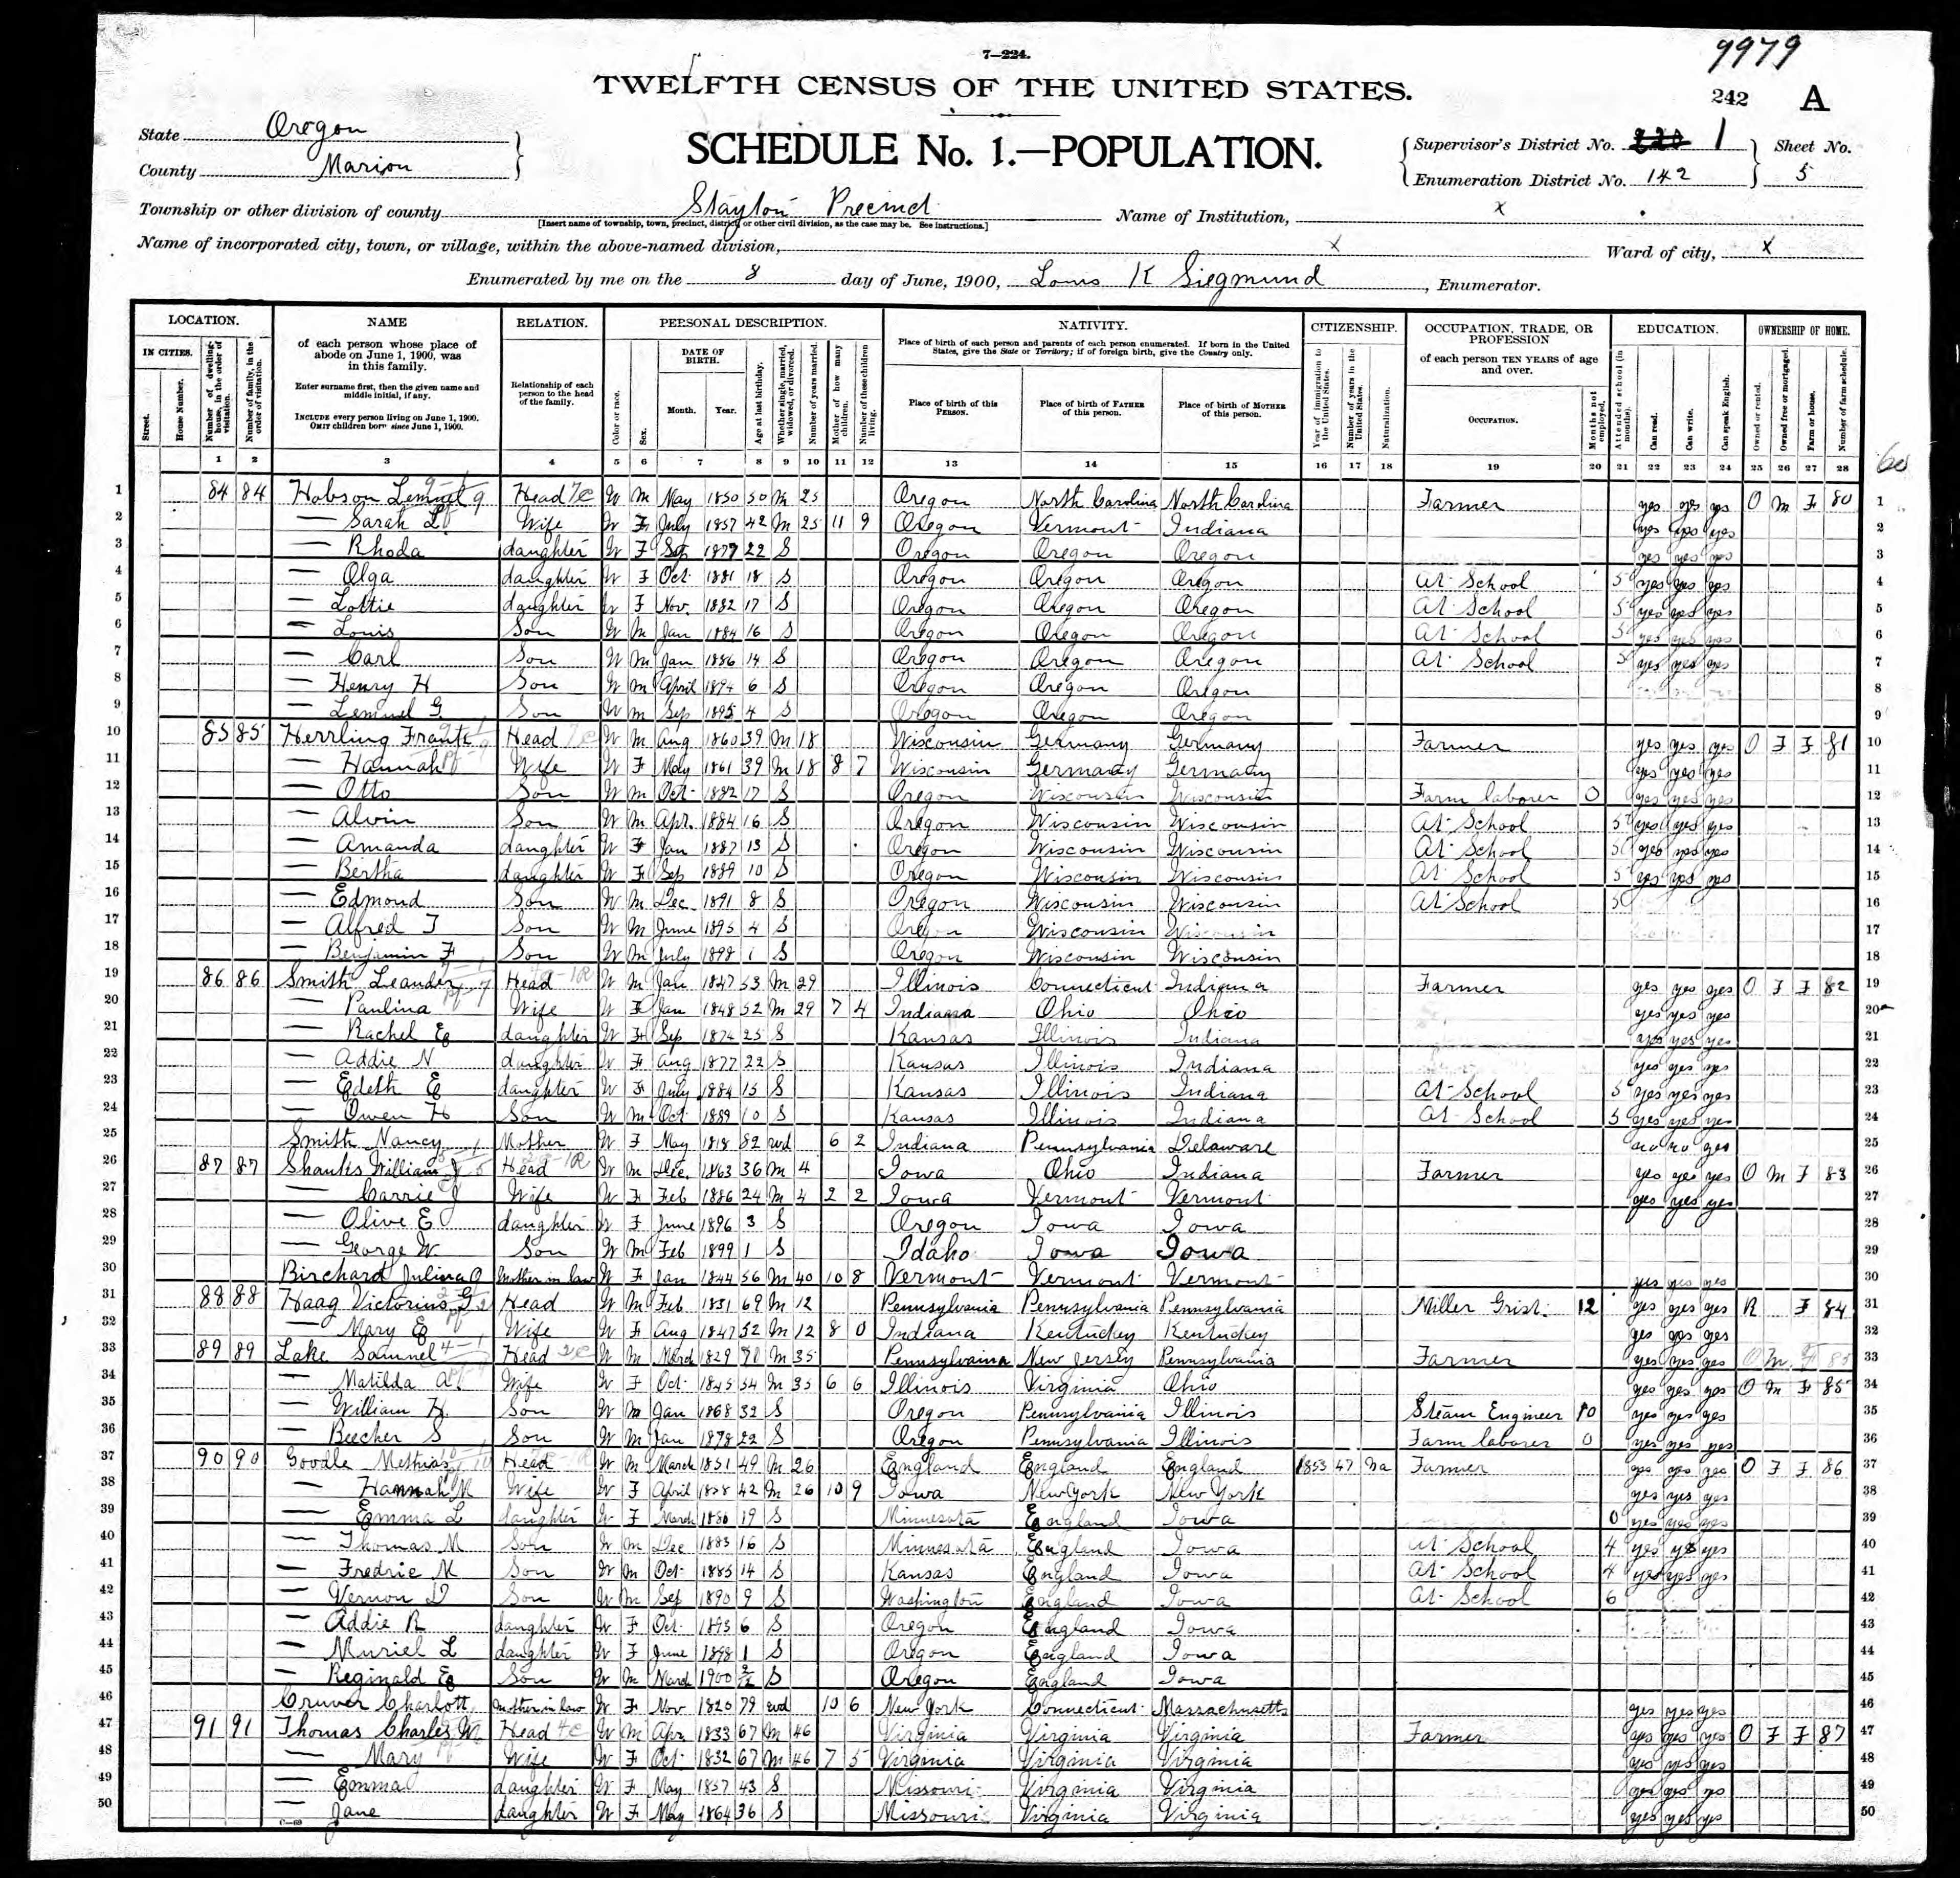 7—224.
9979
TWELFTH CENSUS OF THE UNITED STATES.
242 A
State Oregon
County Marion
SCHEDULE No. 1.—POPULATION.
Supervisor's District No. 1 Sheet No.
Enumeration District No. 142 5
Township or other division of county Stayton Precinct Name of Institution, x
[Insert name of township, town, precinct, district, or other civil division, as the case may be. See instructions.]
Name of incorporated city, town, or village, within the above-named division, x Ward of city, x
Enumerated by me on the 8 day of June, 1900, Louis K Siegmund, Enumerator.
LOCATION. NAME RELATION. PERSONAL DESCRIPTION. NATIVITY. CITIZENSHIP. OCCUPATION, TRADE, OR PROFESSION EDUCATION. OWNERSHIP OF HOME.
IN CITIES. Street. House Number. Number of dwelling-house, in the order of visitation. Number of family, in the order of visitation.
of each person whose place of abode on June 1, 1900, was in this family.
Enter surname first, then the given name and middle initial, if any.
INCLUDE every person living on June 1, 1900. OMIT children born since June 1, 1900.
Relationship of each person to the head of the family.
Color or race. Sex. DATE OF BIRTH. Month. Year. Age at last birthday. Whether single, married, widowed, or divorced. Number of years married. Mother of how many children. Number of these children living.
Place of birth of each person and parents of each person enumerated. If born in the United States, give the State or Territory; if of foreign birth, give the Country only.
Place of birth of this PERSON. Place of birth of FATHER of this person. Place of birth of MOTHER of this person.
Year of immigration to the United States. Number of years in the United States. Naturalization.
of each person TEN YEARS of age and over.
OCCUPATION. Months not employed.
Attended school (in months). Can read. Can write. Can speak English.
Owned or rented. Owned free or mortgaged. Farm or house. Number of farm schedule.
1 2 3 4 5 6 7 8 9 10 11 12 13 14 15 16 17 18 19 20 21 22 23 24 25 26 27 28
1 84 84 Hobson Lemuel Head W M May 1850 50 M 25 Oregon North Carolina North Carolina Farmer yes yes yes O M F 80 1
2 — Sarah L Wife W F July 1857 42 M 25 11 9 Oregon Vermont Indiana yes yes yes 2
3 — Rhoda daughter W F Sep 1877 22 S Oregon Oregon Oregon yes yes yes 3
4 — Olga daughter W F Oct 1881 18 S Oregon Oregon Oregon At School 5 yes yes yes 4
5 — Lottie daughter W F Nov. 1882 17 S Oregon Oregon Oregon At School 5 yes yes yes 5
6 — Louis Son W M Jan 1884 16 S Oregon Oregon Oregon At School 5 yes yes yes 6
7 — Carl Son W M Jan 1886 14 S Oregon Oregon Oregon At School 5 yes yes yes 7
8 — Henry H Son W M April 1894 6 S Oregon Oregon Oregon 8
9 — Lemuel G. Son W M Sep 1895 4 S Oregon Oregon Oregon 9
10 85 85 Herrling Frank Head W M Aug 1860 39 M 18 Wisconsin Germany Germany Farmer yes yes yes O F F 81 10
11 — Hannah Wife W F May 1861 39 M 18 8 7 Wisconsin Germany Germany yes yes yes 11
12 — Otto Son W M Oct 1882 17 S Oregon Wisconsin Wisconsin Farm laborer 0 yes yes yes 12
13 — Alvin Son W M Apr. 1884 16 S Oregon Wisconsin Wisconsin At School 5 yes yes yes 13
14 — Amanda daughter W F Jan 1887 13 S Oregon Wisconsin Wisconsin At School 5 yes yes yes 14
15 — Bertha daughter W F Sep 1889 10 S Oregon Wisconsin Wisconsin At School 5 yes yes yes 15
16 — Edmond Son W M Dec 1891 8 S Oregon Wisconsin Wisconsin At School 5 16
17 — Alfred J Son W M June 1895 4 S Oregon Wisconsin Wisconsin 17
18 — Benjamin F Son W M July 1898 1 S Oregon Wisconsin Wisconsin 18
19 86 86 Smith Leander Head W M Jan 1847 53 M 29 Illinois Connecticut Indiana Farmer yes yes yes O F F 82 19
20 — Paulina Wife W F Jan 1848 52 M 29 7 4 Indiana Ohio Ohio yes yes yes 20
21 — Rachel E daughter W F Sep 1874 25 S Kansas Illinois Indiana yes yes yes 21
22 — Addie N daughter W F Aug 1877 22 S Kansas Illinois Indiana yes yes yes 22
23 — Edeth E daughter W F July 1884 15 S Kansas Illinois Indiana At School 5 yes yes yes 23
24 — Owen H Son W M Oct 1889 10 S Kansas Illinois Indiana At School 5 yes yes yes 24
25 Smith Nancy Mother W F May 1818 82 wd 6 2 Indiana Pennsylvania Delaware no no yes 25
26 87 87 Shanks William J Head W M Dec. 1863 36 M 4 Iowa Ohio Indiana Farmer yes yes yes O M F 83 26
27 — Carrie J Wife W F Feb 1886 24 M 4 2 2 Iowa Vermont Vermont yes yes yes 27
28 — Olive E daughter W F June 1896 3 S Oregon Iowa Iowa 28
29 — George W. Son W M Feb 1899 1 S Idaho Iowa Iowa 29
30 Birchard Julina A Mother in law W F Jan 1844 56 M 40 10 8 Vermont Vermont Vermont yes yes yes 30
31 88 88 Haag Victorius G Head W M Feb 1831 69 M 12 Pennsylvania Pennsylvania Pennsylvania Miller Grist. 12 yes yes yes R F 84 31
32 — Mary E Wife W F Aug 1847 52 M 12 8 0 Indiana Kentuckey Kentuckey yes yes yes 32
33 89 89 Lake Samuel Head W M March 1829 71 M 35 Pennsylvania New Jersey Pennsylvania Farmer yes yes yes O M F 85 33
34 — Matilda A Wife W F Oct 1845 54 M 35 6 6 Illinois Virginia Ohio yes yes yes O M F 85 34
35 — William H. Son W M Jan 1868 32 S Oregon Pennsylvania Illinois Steam Engineer 10 yes yes yes 35
36 — Beecher S Son W M Jan 1878 22 S Oregon Pennsylvania Illinois Farm laborer 0 yes yes yes 36
37 90 90 Goodle Methias Head W M March 1851 49 M 26 England England England 1853 47 Na Farmer yes yes yes O F F 86 37
38 — Hannah M Wife W F April 1858 42 M 26 10 9 Iowa New York New York yes yes yes 38
39 — Emma L daughter W F March 1880 19 S Minnesota England Iowa 0 yes yes yes 39
40 — Thomas M Son W M Dec 1883 16 S Minnesota England Iowa At School 4 yes yes yes 40
41 — Fredric M Son W M Oct 1885 14 S Kansas England Iowa At School 4 yes yes yes 41
42 — Vernon D Son W M Sep 1890 9 S Washington England Iowa At School 6 42
43 — Addie R daughter W F Oct 1893 6 S Oregon England Iowa 43
44 — Muriel L daughter W F June 1898 1 S Oregon England Iowa 44
45 — Reginald E Son W M March 1900 2/12 S Oregon England Iowa 45
46 Cruver Charlott Mother in law W F Nov 1820 79 wd 10 6 New York Connecticut Massachusetts yes yes yes 46
47 91 91 Thomas Charles W. Head W M Apr 1833 67 M 46 Virginia Virginia Virginia Farmer yes yes yes O F F 87 47
48 — Mary Wife W F Oct 1832 67 M 46 7 5 Virginia Virginia Virginia yes yes yes 48
49 — Emma daughter W F May 1857 43 S Missouri Virginia Virginia yes yes yes 49
50 — Jane daughter W F May 1864 36 S Missouri Virginia Virginia yes yes yes 50
C—69